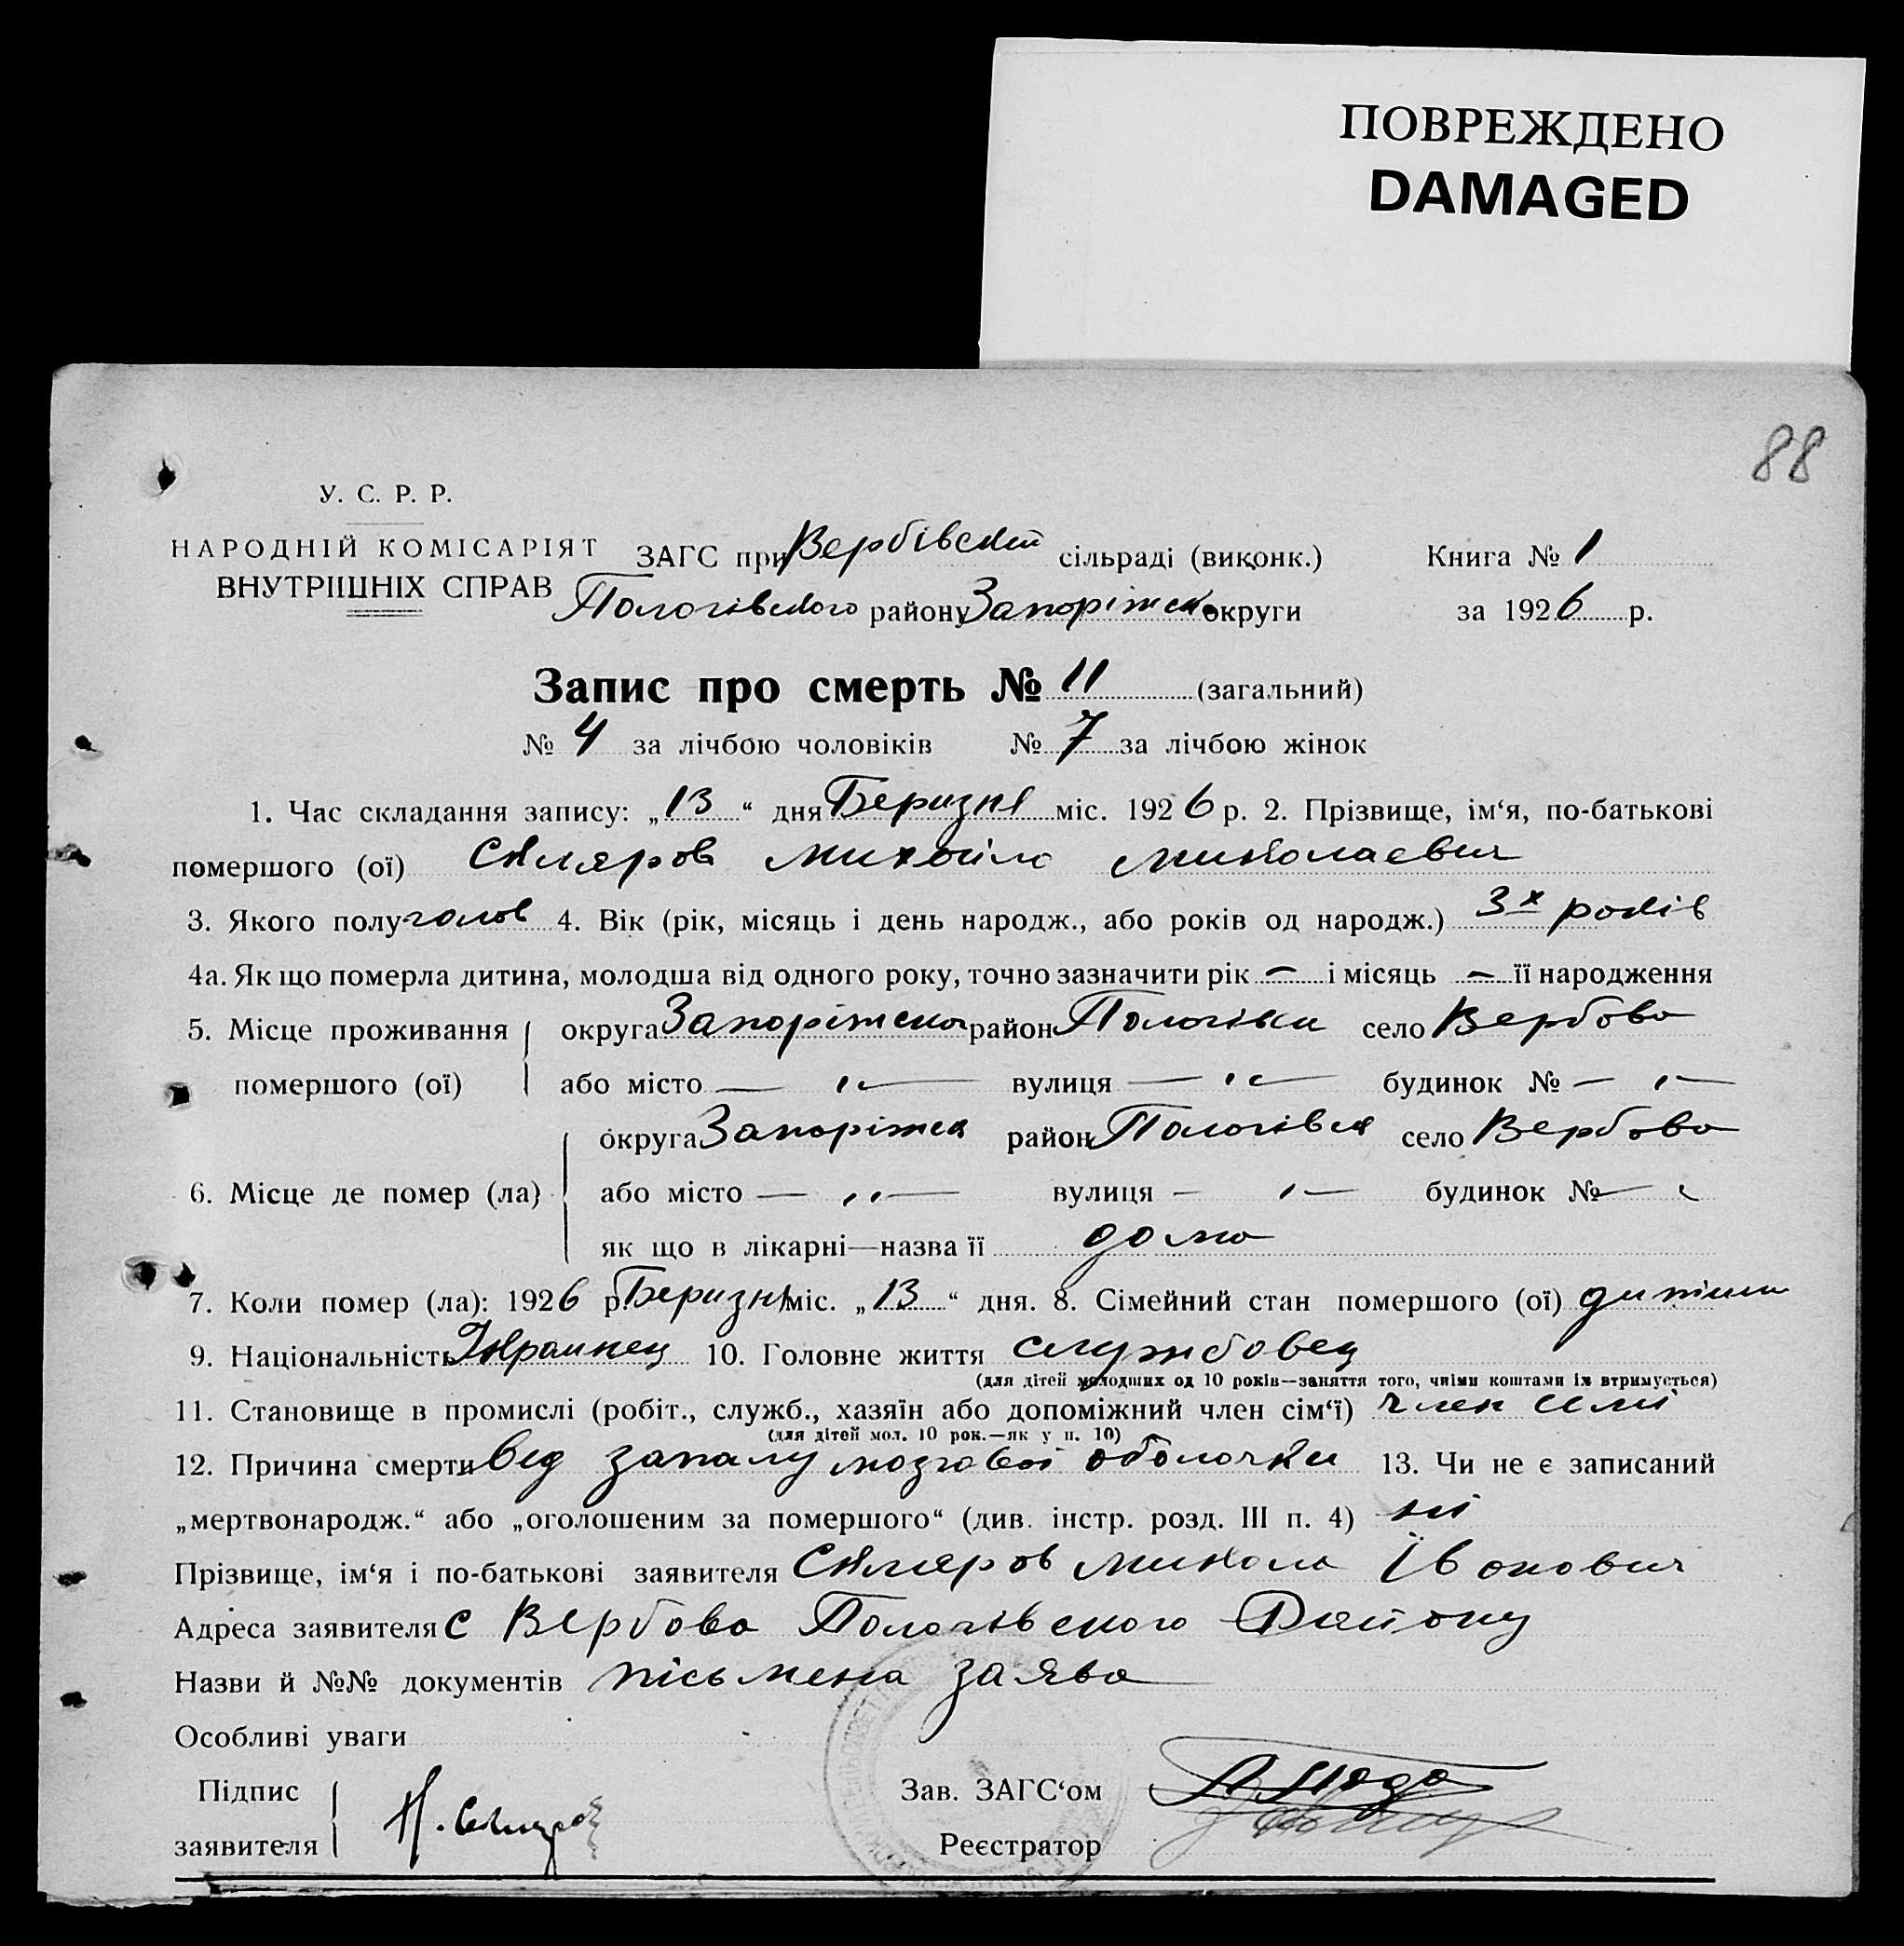 ПОВРЕЖДЕНО
DAMAGED
88
У. С. Р. Р.
НАРОДНІЙ КОМІСАРІЯТ
ВНУТРІШНІХ СПРАВ
ЗАГС при Вербівский сільраді (виконк.) Книга № 1
Пологівского району Запоріжск округи за 1926 р.
Запис про смерть № 11 (загальний)
№ 4 за лічбою чоловіків № 7 за лічбою жінок
1. Час складання запису: „13“ дня Беризня міс. 1926 р. 2. Прізвище, ім‘я, по-батькові
помершого (ої) Скляров Михайло Миколаевич
3. Якого полу чолов 4. Вік (рік, місяць і день народж., або років од народж.) 3х років
4а. Як що померла дитина, молодша від одного року, точно зазначити рік — і місяць — її народження
5. Місце проживання округа Запоріжска район Пологівск село Вербова
помершого (ої) або місто — „ — вулиця — „ — будинок № — „ —
округа Запоріжск район Пологівск село Вербова
6. Місце де помер (ла) або місто — „ — вулиця — „ — будинок № — „
як що в лікарні—назва її дома
7. Коли помер (ла): 1926 р. Беризня міс. „13“ дня. 8. Сімейний стан помершого (ої) дитина
9. Національність Украинец 10. Головне життя службовец
(для дітей молодших од 10 років—заняття того, чиїми коштами їх втримується)
11. Становище в промислі (робіт., служб., хазяїн або допоміжний член сім‘ї) член семі
(для дітей мол. 10 рок.—як у п. 10)
12. Причина смерти вед запалу мозговоі оболочки 13. Чи не є записаний
„мертвонародж.“ або „оголошеним за помершого“ (див. інстр. розд. III п. 4) ні
Прізвище, ім‘я і по-батькові заявителя Скляров Микола Іванович
Адреса заявителя с Вербова Пологівского Району
Назви й №№ документів пісьмена заява
Особливі уваги
Підпис
заявителя Н. Скляров
Зав. ЗАГС‘ом
Реєстратор